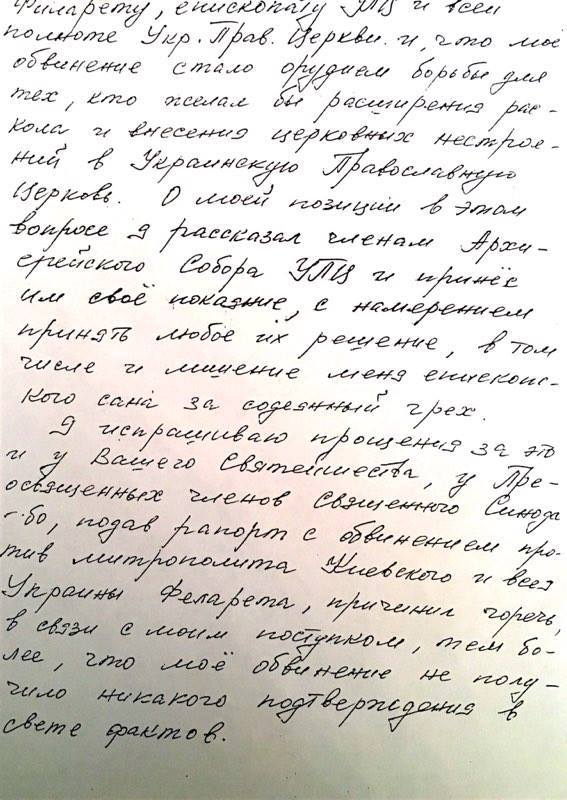 Филарету, епископату УПЦ и всей
полноте Укр. Прав. Церкви. и, что моё
обвинение стало орудием борьбы для
тех, кто желал бы расширения рас-
кола и внесения церковных нестрое-
ний в Украинскую Православную
Церковь. О моей позиции в этом
вопросе я рассказал членам Архи-
ерейского Собора УПЦ и принёс
им своё покаяние, с намерением
принять любое их решение, в том
числе и лишение меня епископс-
кого сана за содеянный грех.
Я испрашиваю прощения за это
и у Вашего Святейшества, у Пре-
освященных членов Священного Синода
ибо, подав рапорт с обвинением про-
тив митрополита Киевского и всея
Украины Феларета, причинил горечь,
в связи с моим поступком, тем бо-
лее, что моё обвинение не полу-
чило никакого подтверждения в
свете фактов.